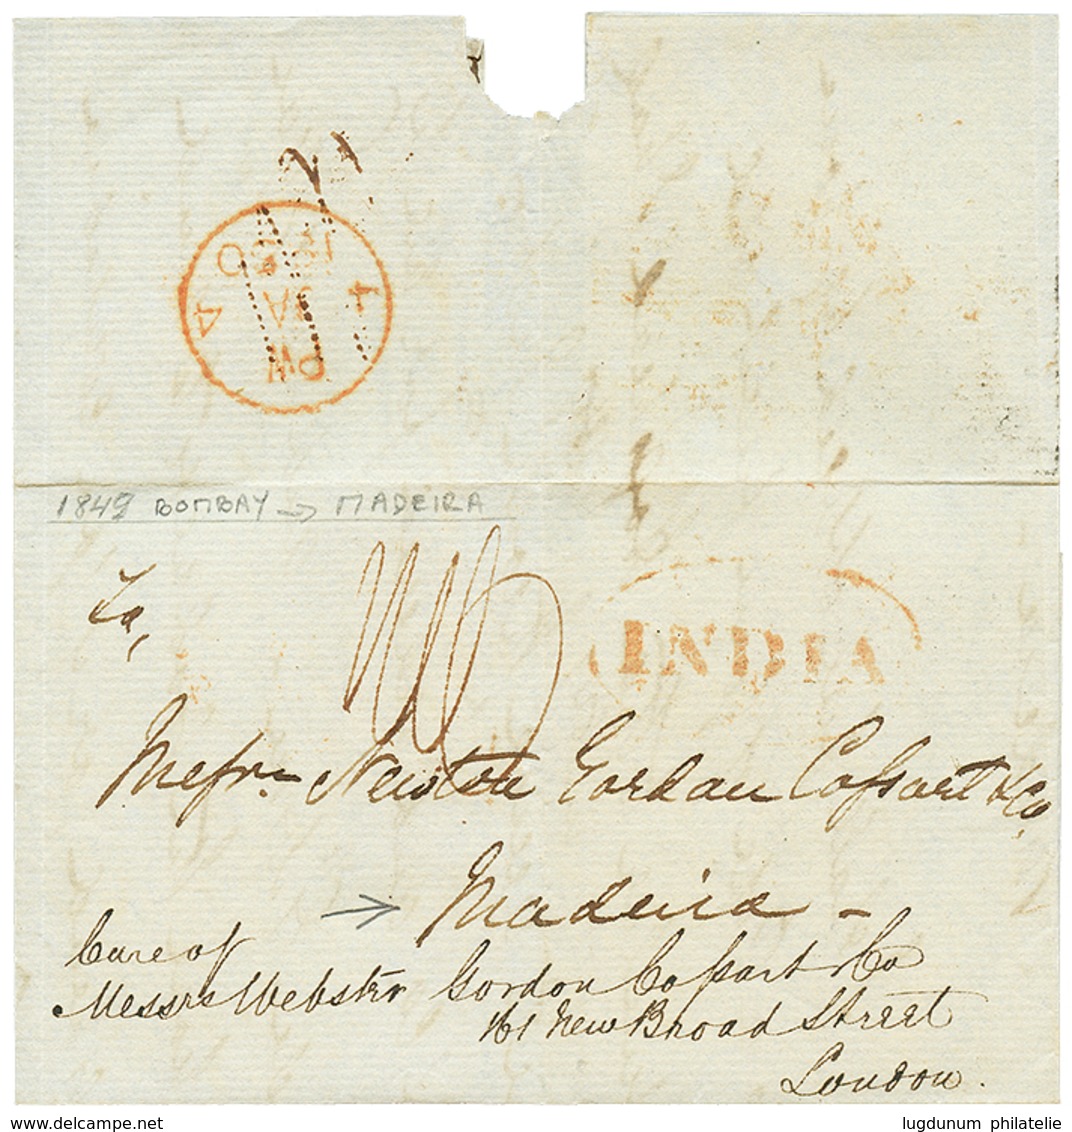 PW
4 JA 4
1850
1849 BOMBAY → MADEIRA
To,
INDIA
Messrs Newton Gordon Cossart & Co
Madeira -
Care of
Messrs Webster Gordon Cossart & Co
161 New Broad Street
London.
www.delcampe.net
lugdunum philatelie